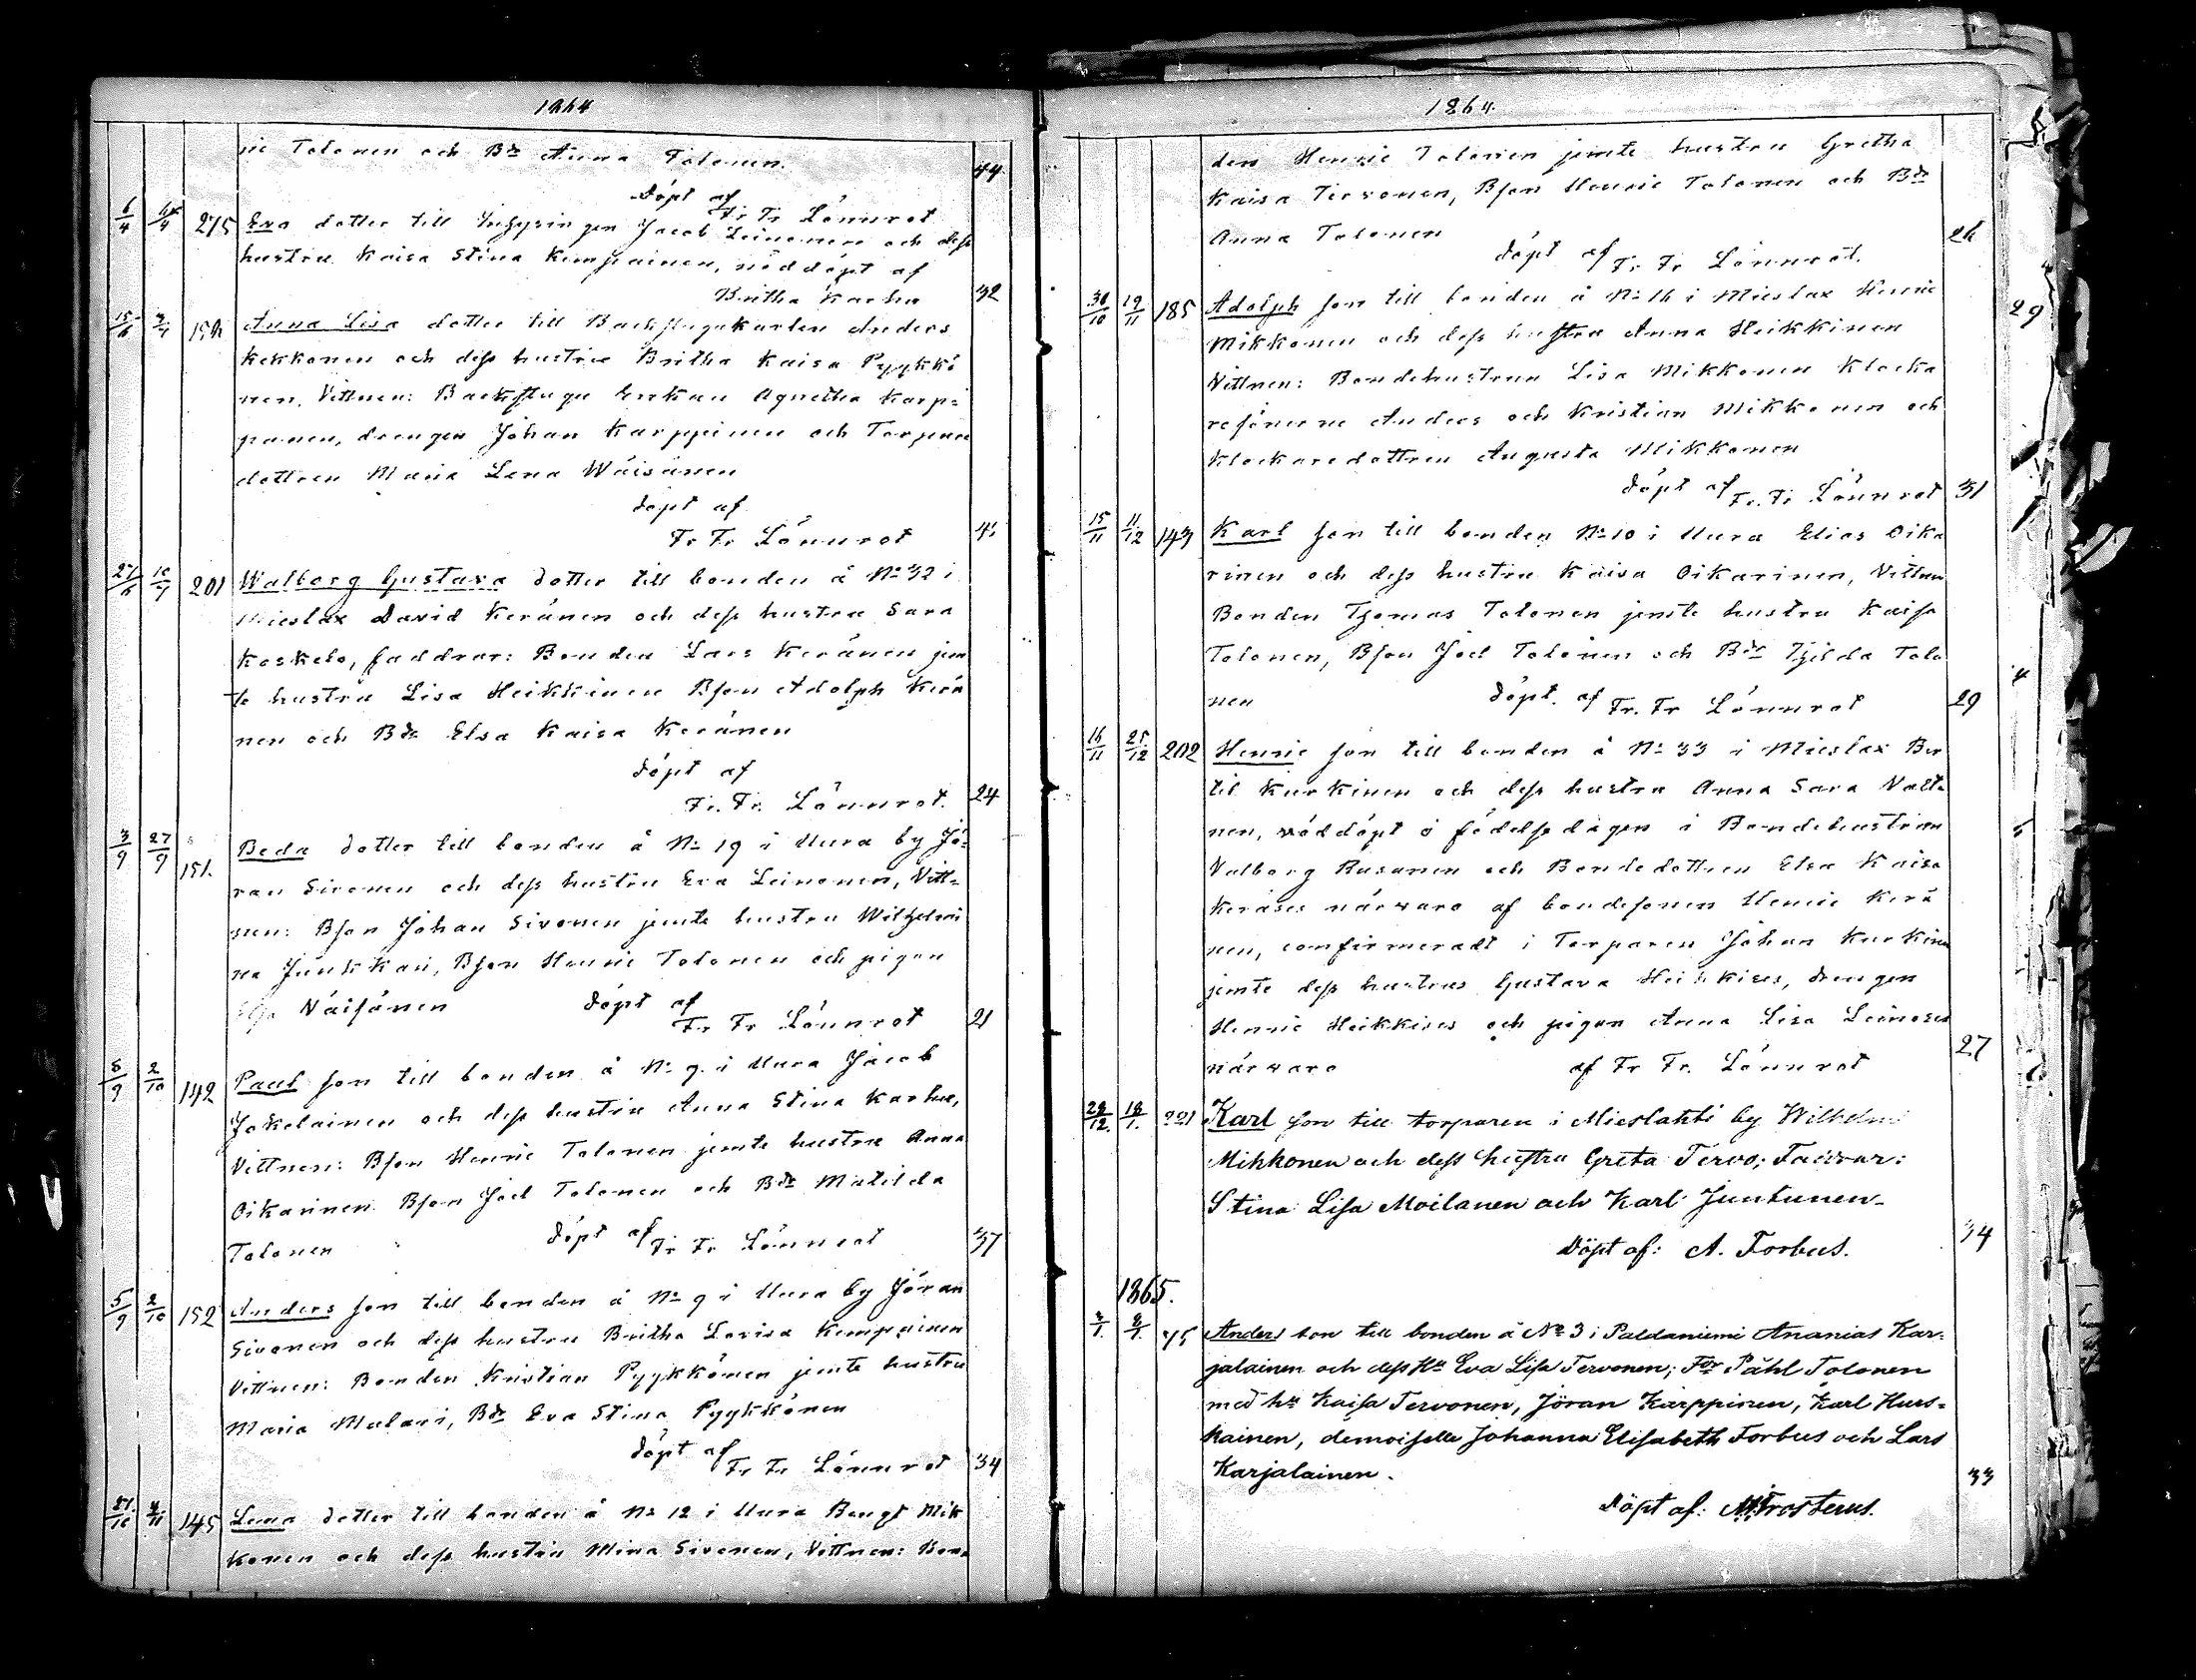 1864
ric Tolonen och Bdr Anna Tolonen. 44
Döpt af
Fr Fr Lönnrot
6/4 275 Eva dotter till Inhysingen Jacob Leinonen och dess
hustru Kaisa Stina Kemppainen, nöddöpt af
Britha Karhu 32
15/6 Anna Lisa dotter till Backstugukarlen Anders
Kekkonen och dess hustru Britha Kaisa Pyykkö
nen. Vittnen: Backstugu Enkan Agnetha Karp=
panen, drengen Johan Karppinen och Torpare
dottren Maria Lena Wäisänen
döpt af
Fr Fr Lönnrot
201 Walborg Gustava dotter till bonden å No 32 i
Mieslax David Keränen och dess hustru Sara
Koskelo, faddrar: Bonden Lars Keränen jem
te hustru Lisa Heikkinen Bson Adolph Kerä
nen och Bdr Elsa Kaisa Keränen
döpt af
Fr. Fr. Lönnrot. 24
3/9 27/9 151. Beda dotter till bonden å No 19 i Mura by Jö=
ran Sivonen och dess hustru Eva Leinonen, Vitt=
nen: Bson Johan Sivonen jemte hustru Wilhelmi
na Junkkari, Bson Henric Tolonen och pigan
Väisänen döpt af
Fr Fr Lönnrot 21
5/9 2/10 142 Paul son till bonden å No 9 i Mura Jacob
Jokelainen och dess hustru Anna Stina Karhu,
Vittnen: Bson Henric Tolonen jemte hustru Anna
Oikarinen Bson Joel Tolonen och Bdr Matilda
Tolonen döpt af Fr Fr Lönnrot 37
5/9 2/10 152 Anders son till bonden å No 9 i Mura by Jöran
Sivonen och dess hustru Britha Lovisa Kemppainen
Vittnen: Bonden Kristian Pyykkönen jemte hustru
Maria Malari, Bdr Eva Stina Pyykkönen
döpt af
Fr Fr Lönnrot 34
145 Lena dotter till bonden å No 12 i Mura Bengt Mik
konen och dess hustru Mina Sivonen, Vittnen: Bon=
1864.
den Henric Tolonen jemte hustru Gretha
Kaisa Tervonen, Bson Henric Tolonen och Bdr
Anna Tolonen 26
döpt af Fr Fr Lönnrot.
30/10 19/11 185 Adolph son till bonden å No 16 i Mieslax Henric
Mikkonen och dess hustru Anna Heikkinen
Vittnen: Bondehustrun Lisa Mikkonen Klocka
resönerne Anders och Kristian Mikkonen och
Klockaredottren Augusta Mikkonen
döpt af Fr. Fr Lönnrot 31
29
15/11 11/12 143 Karl son till bonden No 10 i Mura Elias Oika
rinen och dess hustru Kaisa Oikarinen, Vittnen
Bonden Thomas Tolonen jemte hustru Kaisa
Tolonen, Bson Joel Tolonen och Bdr Hilda Tolo
nen döpt. af Fr. Fr Lönnrot 29
16/11 25/12 202 Henric son till bonden å No 33 i Mieslax Ber
til Kurkinen och dess hustru Anna Sara Valta
nen, nöddöpt å födelsedagen i Bondehustrun
Valborg Rusanen och Bondedottren Elsa Kaisa
Keräses närvaro af bondesonen Henric Kerä
nen, confirmeradt i Torparen Johan Kurkinen
jemte dess hustrus Gustava Heikkises, drengen
Henric Heikkises och pigan Anna Lisa Leinoses
närvaro af Fr Fr. Lönnrot 27
29/12. 18/1. 221 Karl son till torparen i Mieslahti by Wilhelm
Mikkonen och dess hustru Greta Tervo; Faddrar:
Stina Lisa Moilanen och Karl Juntunen.
Döpt af: A. Forbus. 34
1865.
75 Anders son till bonden å No 3 i Paldaniemi Ananias Kar=
jalainen och dess Hu Eva Lisa Tervonen; Fdr Påhl Tolonen
med hu Kaisa Tervonen, Jöran Karppinen, Karl Hurs=
kainen, demoiselle Johanna Elisabeth Forbus och Lars
Karjalainen. 33
Döpt af: M. Frosterus.